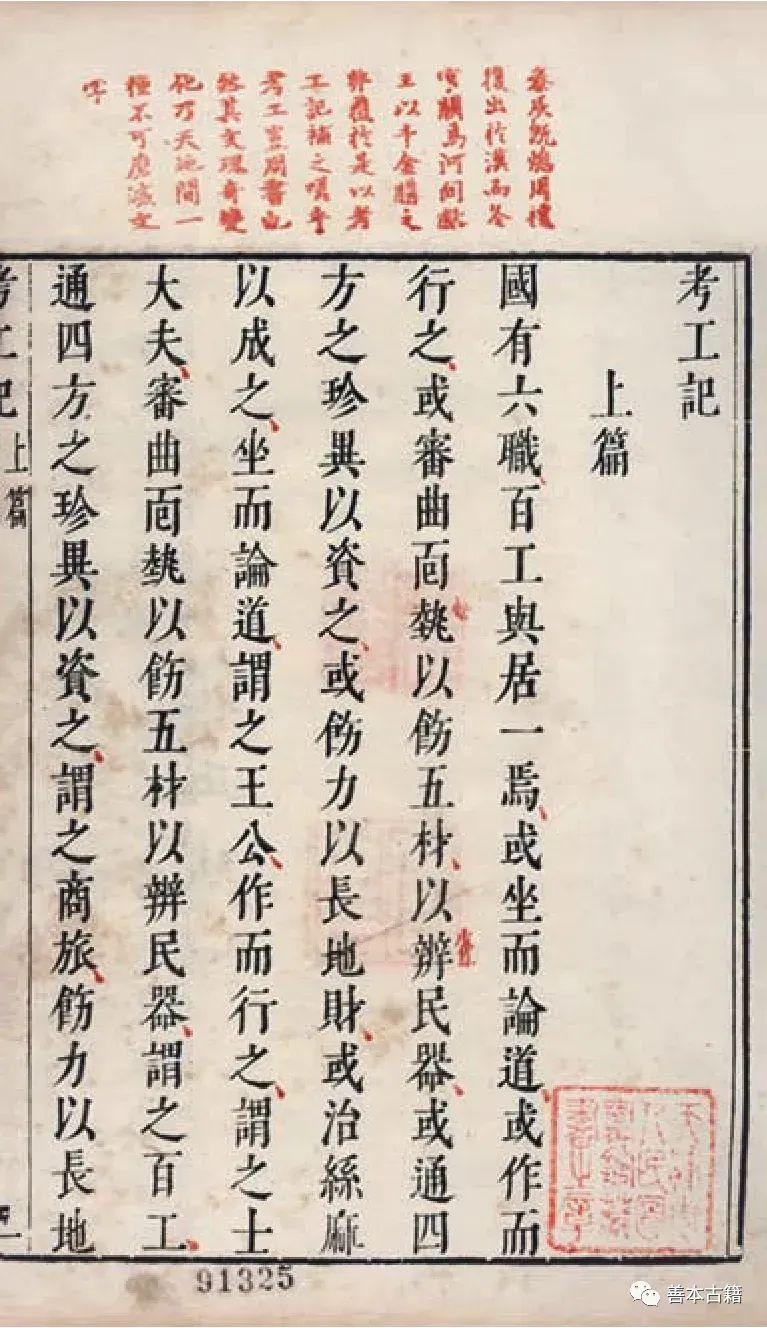 秦既周禮
復出於漢而冬
官闕焉河間獻
王以千金購之
弗獲於是以考
工記補之嗟乎
考工豈周書也
然其文理奇變
乃天地間一
種不可磨滅文
字
考工記
上篇
國有六職、百工與居一焉、或坐而論道、或作而
行之、或審曲面埶以飭五材、以辨民器、或通四
方之珍異以資之、或飭力以長地財、或治絲麻
以成之、坐而論道、謂之王公、作而行之、謂之士
大夫、審曲面埶以飭五材以辨民器、謂之百工、
通四方之珍異以資之、謂之商旅、飭力以長地
考工記 上篇
91325
善本古籍